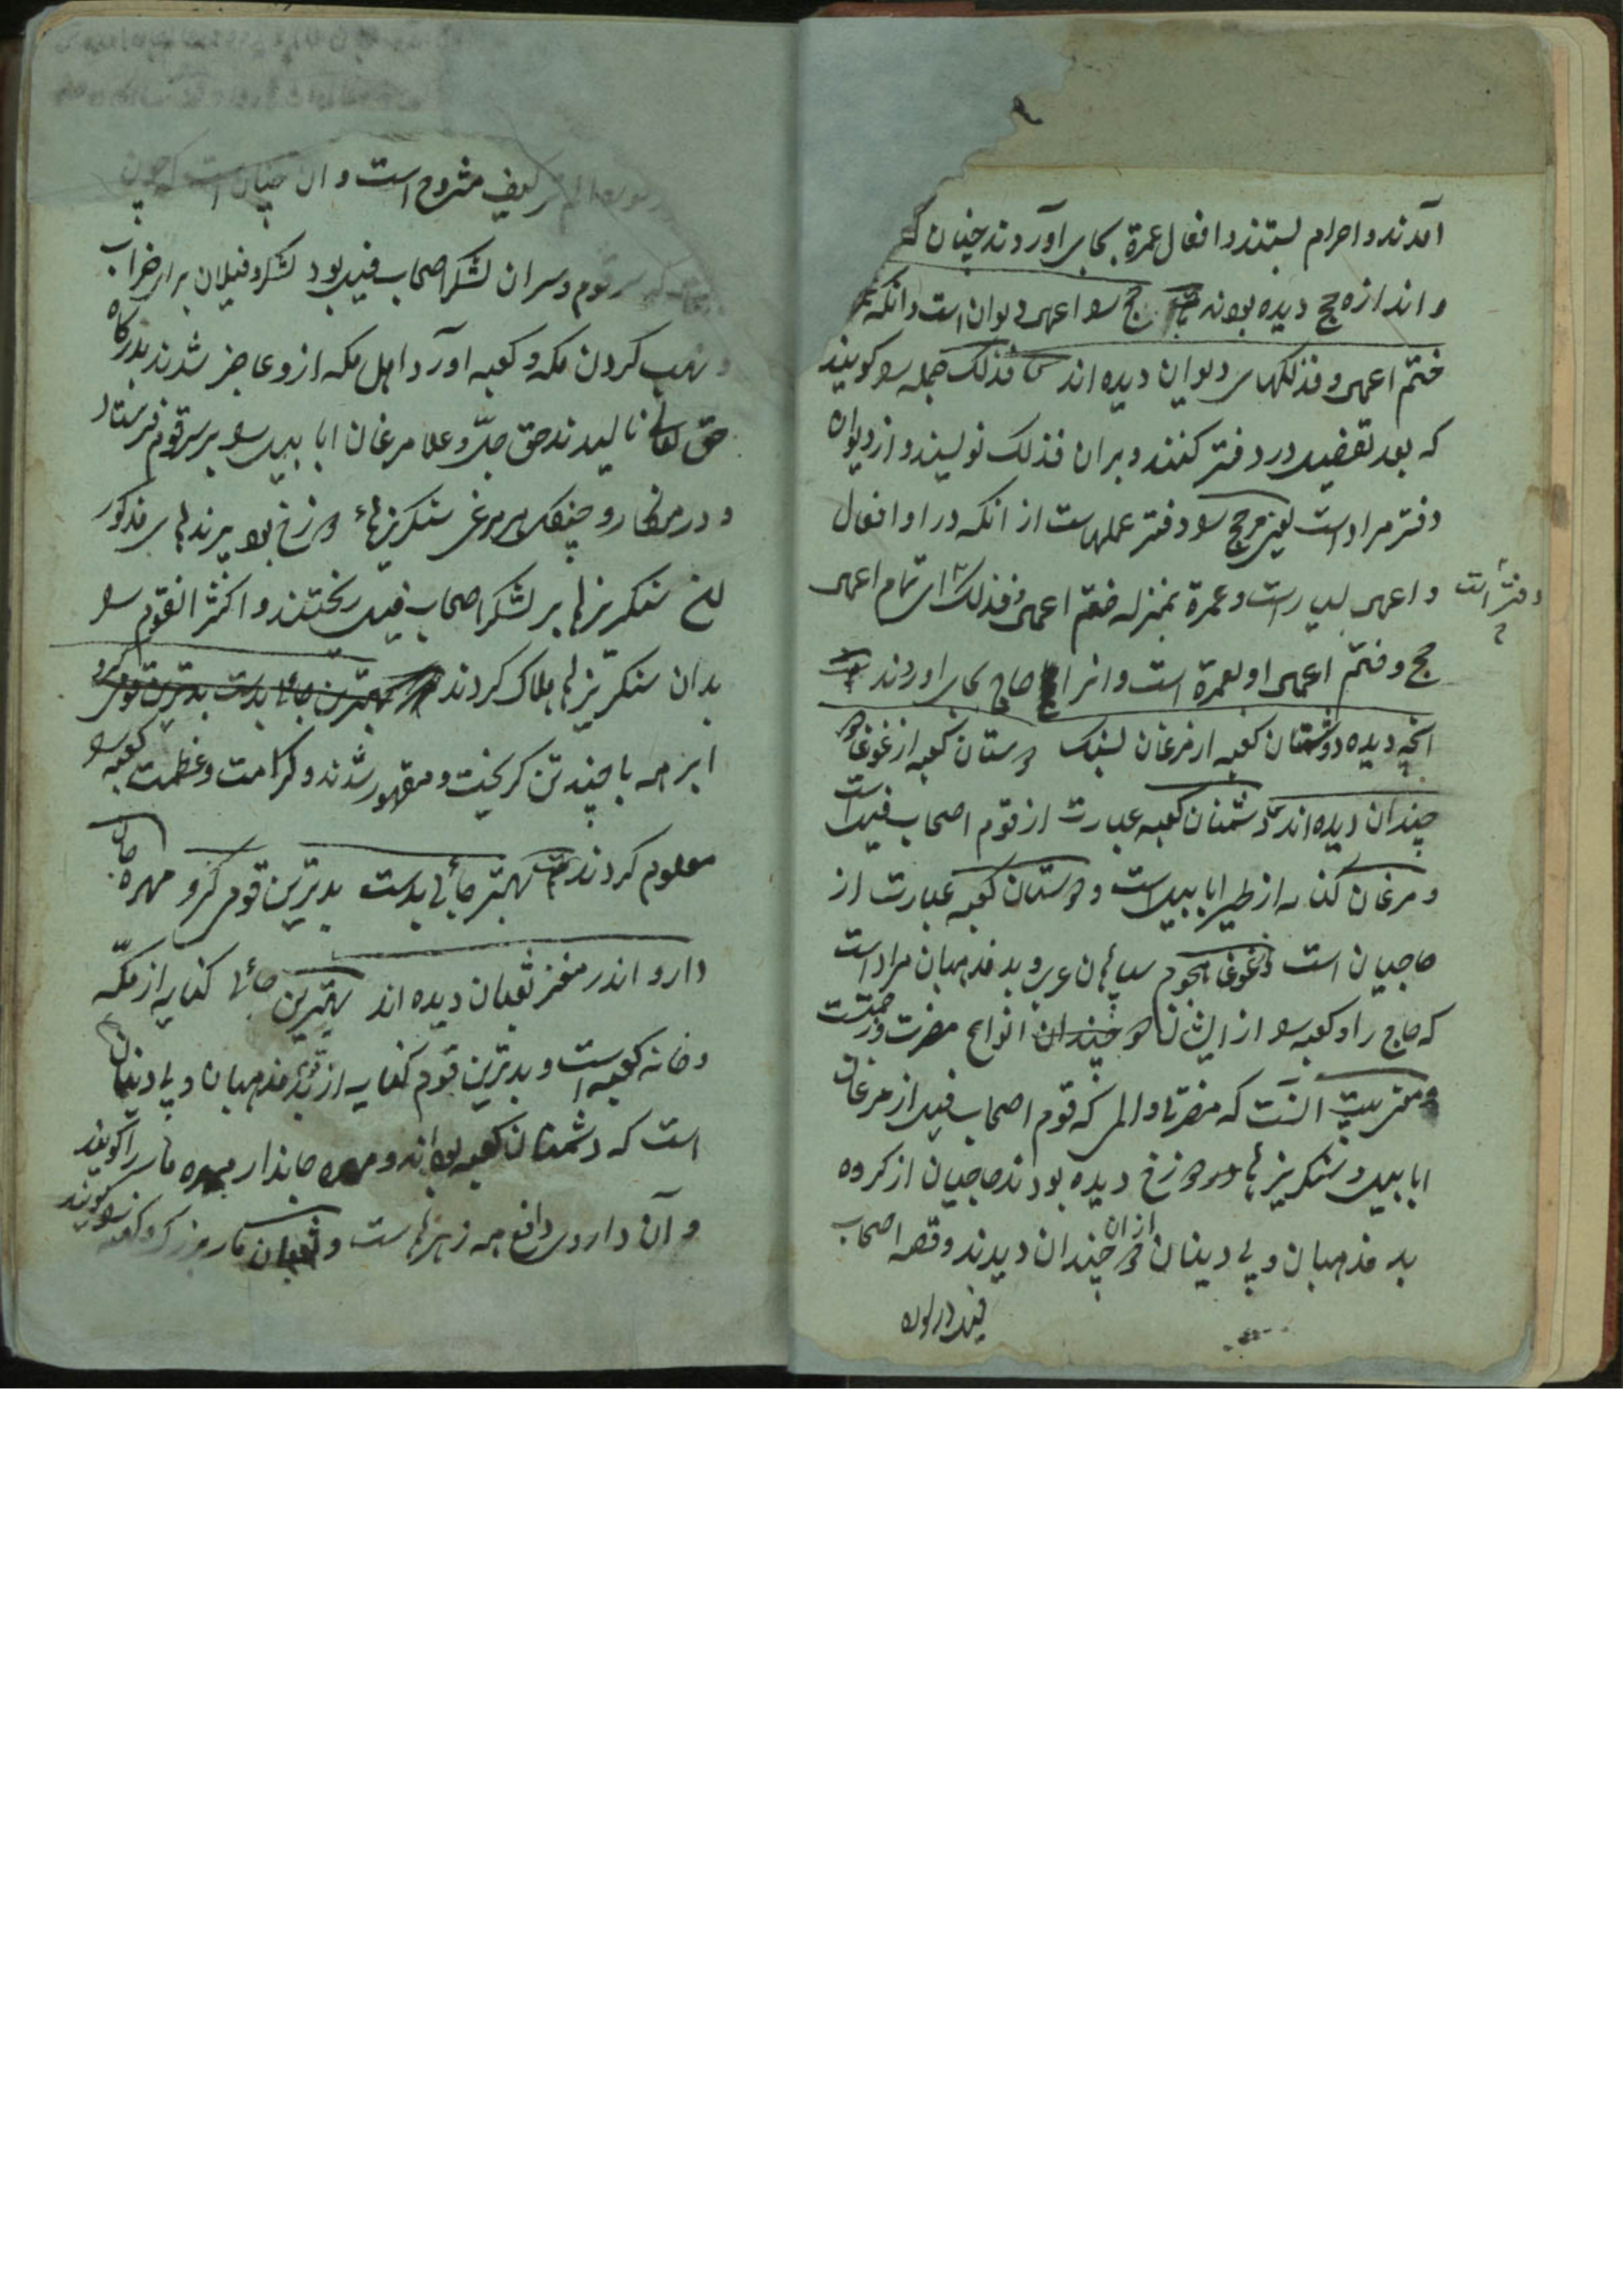 آمدند و احرام بستند و افعال عمرة بجای آوردند چنان که
و اندازه حج دیده بودند حج را اعمی دیوان است و انکه
ختم اعمی و فذلکهای دیوان دیده اند فذلک جمله را کویند
که بعد تفضیل در دفتر کنند و بران فذلک نویسند و از دیوان
دفتر مراد است یعنی حج را دفتر عملهاست از انکه در او افعال
و اعمی بسیار است و عمرة بمنزله ختم اعمی و فذلک ای تمام اعمی
دفتر است
حج و ختم اعمی او بعمرة است و انرا حاج بجای اوردند
انچه دیده دشمنان کعبه از مرغان بسنک دوستان کعبه از غوغا
چندان دیده اند دشمنان کعبه عبارت از قوم اصحاب فیل است
و مرغان کنایه از طیر ابابیل است و دوستان کعبه عبارت از
حاجیان است و غوغا هجوم سپاهان عرب و بد مذهبان مراد است
که حاج را و کعبه را از ایشان انواع مضرت و زحمتست
و معنی بیت انست که مضرتها و المی که قوم اصحاب فیل از مرغان
ابابیل و سنکریزهای دوزخ دیده بودند حاجیان از کروه
بد مذهبان و بی دینان دو چندان از ان دیدند و قصه اصحاب
فیل در سوره
الم تر کیف مشروح است و ان چنان است که چون
قوم و سران لشکر اصحاب فیل بود لشکر و فیلان برای خراب
و نهب کردن مکه و کعبه اورد و اهل مکه ازو عاجز شدند بدرکاه
حق تعالی نالیدند حق جل و علا مرغان ابابیل را بر سر قوم فرستاد
و در منقار و چنکل هر مرغی سنکریزهاء دوزخ بود پرندهای مذکور
سنکریزها بر لشکر اصحاب فیل ریختند و اکثر القوم را
بدان سنکریزها هلاک کردند بهترین جای بدست بدترین قومی کرو
ابرهه با چند تن کریخت و مقهور شدند و کرامت و عظمت کعبه را
معلوم کردند بهتر جائی بدست بدترین قومی کرو مهره جان
دارو اندر مغز ثعبان دیده اند بهترین جائها کنایه از مکه
و خانه کعبه است و بدترین قوم کنایه از بد مذهبان و بی دینان
است که دشمنان کعبه بوده اند و مهره جاندار مهره مار را کویند
و آن داروی دافع همه زهرهاست و ثعبان مار بزرک و کهنه را کویند